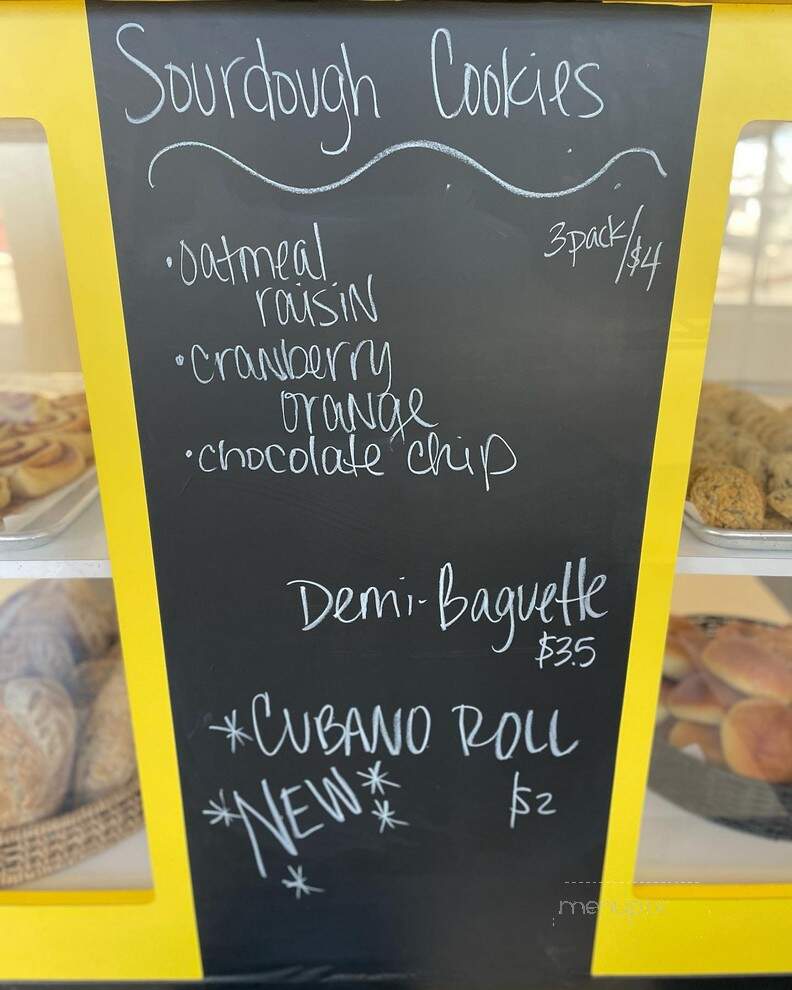 Sourdough Cookies
3pack/$4
•oatmeal
raisin
•cranberry
orange
•chocolate chip
Demi-Baguette
$3.5
*CUBANO ROLL
*NEW**
$2
*
menupix